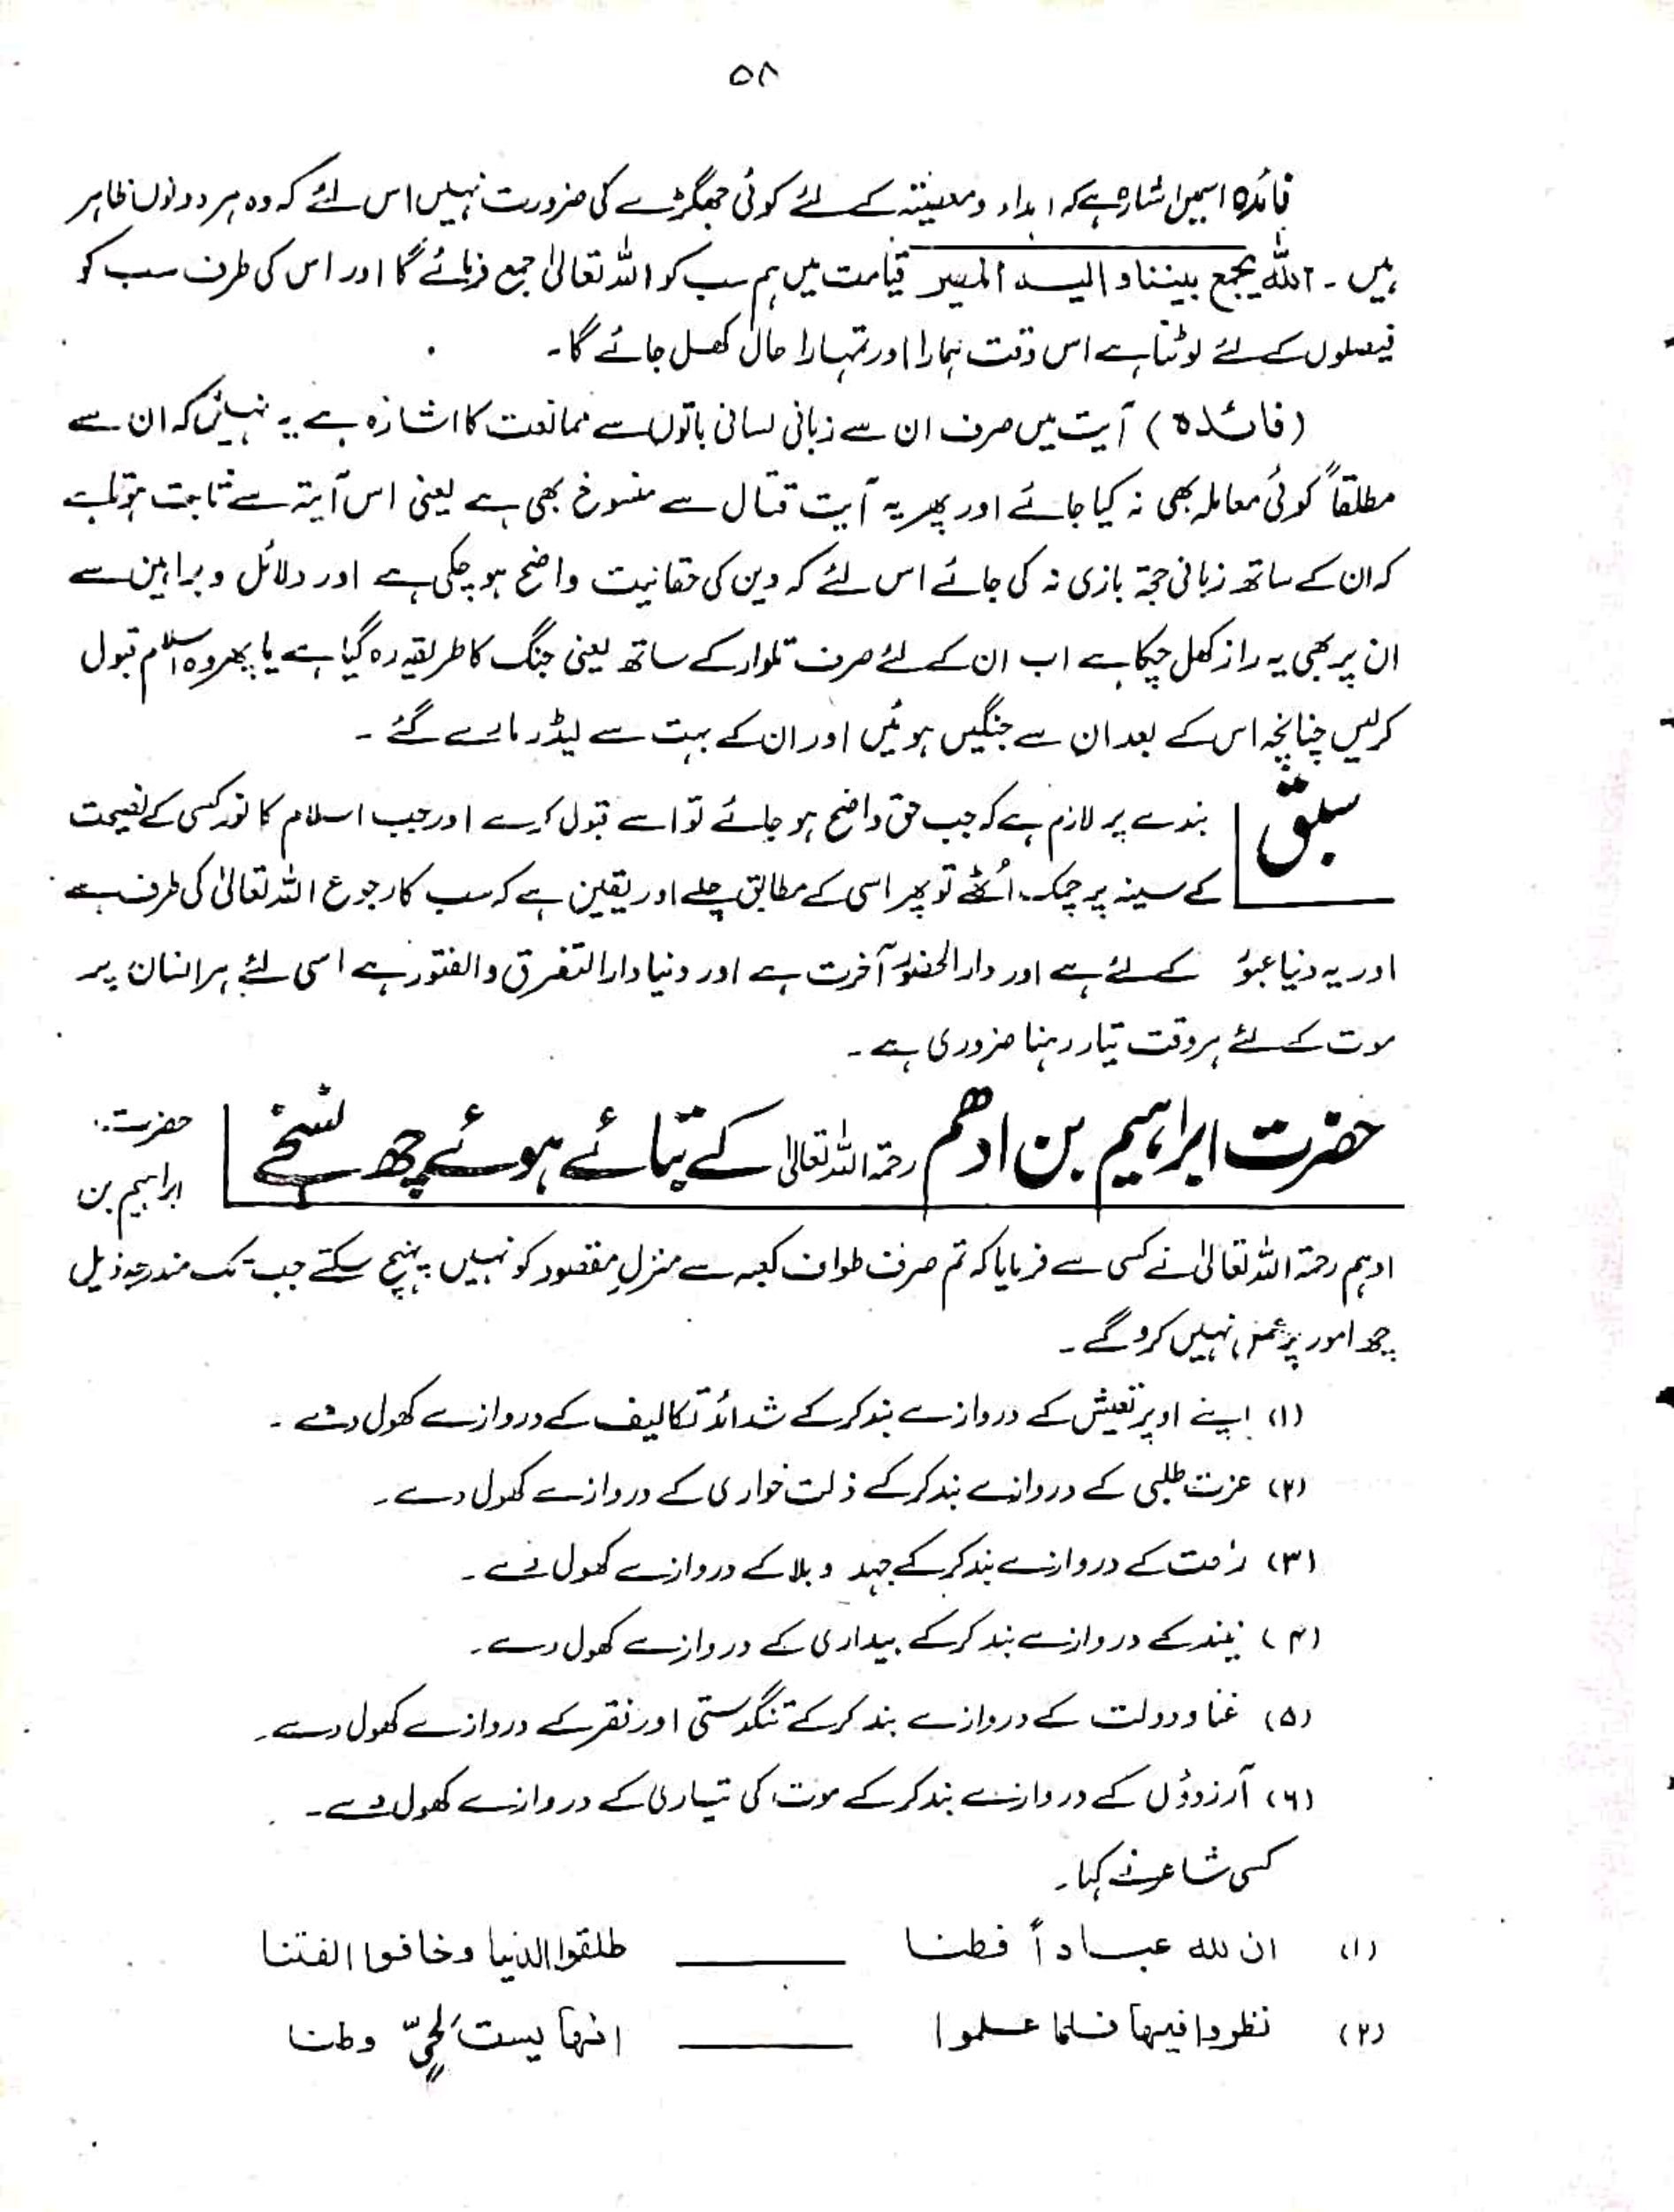 ۵۸
فائدہ اسمیں اشارہ ہے کہ ابداء و معینتہ کے لئے کوئی جھگڑے کی ضرورت نہیں اس لئے کہ وہ ہر دونوں ظاہر
ہیں ۔ اللہ یجمع بیننا و الیہ المصیر قیامت میں ہم سب کو اللہ تعالیٰ جمع فرمائے گا اور اس کی طرف سب کو
فیصلوں کے لئے لوٹنا ہے اس وقت ہمارا اور تمہارا حال کھل جائے گا۔
(فائدہ) آیت میں صرف ان سے زبانی لسانی باتوں سے ممانعت کا اشارہ ہے یہ نہیں کہ ان سے
مطلقاً کوئی معاملہ بھی نہ کیا جائے اور پھر یہ آیت قتال سے منسوخ بھی ہے یعنی اس آیتہ سے ثابت ہوتا ہے
کہ ان کے ساتھ زبانی حجتہ بازی نہ کی جائے اس لئے کہ دین کی حقانیت واضح ہو چکی ہے اور دلائل و براہین سے
ان پر بھی یہ راز کھل چکا ہے اب ان کے لئے صرف تلوار کے ساتھ یعنی جنگ کا طریقہ رہ گیا ہے یا پھر وہ اسلام قبول
کرلیں چنانچہ اس کے بعد ان سے جنگیں ہوئیں اور ان کے بہت سے لیڈر مارے گئے ۔
سبق بندے پر لازم ہے کہ جب حق واضح ہو جائے تو اسے قبول کرے اور جب اسلام کا نور کسی کے نصیحت
کے سینہ پر چمک اُٹھے تو پھر اسی کے مطابق چلے اور یقین ہے کہ سب کا رجوع اللہ تعالیٰ کی طرف ہے
اور یہ دنیا عبور کے لئے ہے اور دار الحضور آخرت ہے اور دنیا دار التفرق والفتور ہے اسی لئے ہر انسان پر
موت کے لئے ہر وقت تیار رہنا ضروری ہے ۔
حضرت ابراہیم بن ادھم رحمۃ اللہ تعالیٰ کے بتائے ہوئے چھ نسخے حضرت
ابراہیم بن
ادہم رحمۃ اللہ تعالیٰ نے کسی سے فرمایا کہ تم صرف طواف کعبہ سے منزلِ مقصود کو نہیں پہنچ سکتے جب تک مندرجہ ذیل
چھ امور پر عمل نہیں کرو گے ۔
(۱) اپنے اوپر تعیش کے دروازے بند کرکے شدائد تکالیف کے دروازے کھول دے ۔
(۲) عزت طلبی کے دروازے بند کرکے ذلت خواری کے دروازے کھول دے ۔
(۳) راحت کے دروازے بند کرکے جہد و بلا کے دروازے کھول دے ۔
(۴) نیند کے دروازے بند کرکے بیداری کے دروازے کھول دے ۔
(۵) غنا و دولت کے دروازے بند کرکے تنگدستی اور فقر کے دروازے کھول دے ۔
(۶) آرزوؤں کے دروازے بند کرکے موت کی تیاری کے دروازے کھول دے ۔
کسی شاعر نے کہا ۔
(۱) ان للہ عباداً فطنا ——— طلقوا الدنیا وخافوا الفتنا
(۲) نظروا فیہا فلما علموا ——— انہا یست لحیّ وطنا